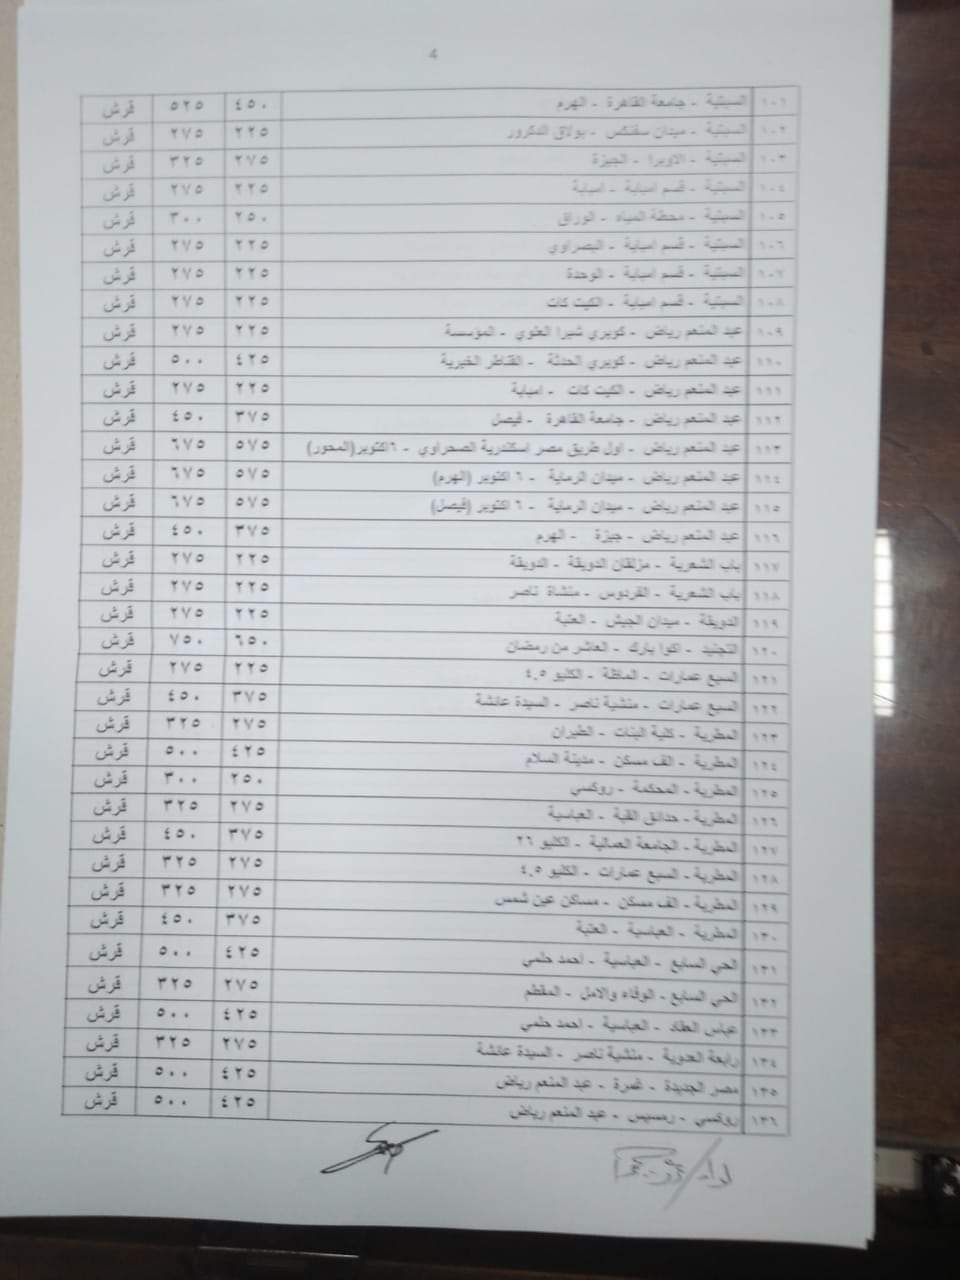 4
١٠١ السبتية - جامعة القاهرة - الهرم ٤٥٠ ٥٢٥ قرش
١٠٢ السبتية - ميدان سفنكس - بولاق الدكرور ٢٢٥ ٢٧٥ قرش
١٠٣ السبتية - الاوبرا - الجيزة ٢٧٥ ٣٢٥ قرش
١٠٤ السبتية - قسم امبابة - امبابة ٢٢٥ ٢٧٥ قرش
١٠٥ السبتية - محطة المياه - الوراق ٢٥٠ ٣٠٠ قرش
١٠٦ السبتية - قسم امبابة - البصراوي ٢٢٥ ٢٧٥ قرش
١٠٧ السبتية - قسم امبابة - الوحدة ٢٢٥ ٢٧٥ قرش
١٠٨ السبتية - قسم امبابة - الكيت كات ٢٢٥ ٢٧٥ قرش
١٠٩ عبد المنعم رياض - كوبري شبرا العلوي - المؤسسة ٢٢٥ ٢٧٥ قرش
١١٠ عبد المنعم رياض - كوبري الحدثة - القناطر الخيرية ٤٢٥ ٥٠٠ قرش
١١١ عبد المنعم رياض - الكيت كات - امبابة ٢٢٥ ٢٧٥ قرش
١١٢ عبد المنعم رياض - جامعة القاهرة - فيصل ٣٧٥ ٤٥٠ قرش
١١٣ عبد المنعم رياض - اول طريق مصر اسكندرية الصحراوي - ٦اكتوبر(المحور) ٥٧٥ ٦٧٥ قرش
١١٤ عبد المنعم رياض - ميدان الرماية - ٦ اكتوبر (الهرم) ٥٧٥ ٦٧٥ قرش
١١٥ عبد المنعم رياض - ميدان الرماية - ٦ اكتوبر (فيصل) ٥٧٥ ٦٧٥ قرش
١١٦ عبد المنعم رياض - جيزة - الهرم ٣٧٥ ٤٥٠ قرش
١١٧ باب الشعرية - مزلقان الدويقة - الدويقة ٢٢٥ ٢٧٥ قرش
١١٨ باب الشعرية - الفردوس - منشاة ناصر ٢٢٥ ٢٧٥ قرش
١١٩ الدويقة - ميدان الجيش - العتبة ٢٢٥ ٢٧٥ قرش
١٢٠ التجنيد - اكوا بارك - العاشر من رمضان ٦٥٠ ٧٥٠ قرش
١٢١ السبع عمارات - الماظة - الكليو ٤.٥ ٢٢٥ ٢٧٥ قرش
١٢٢ السبع عمارات - منشية ناصر - السيدة عائشة ٣٧٥ ٤٥٠ قرش
١٢٣ المطرية - كلية البنات - الطيران ٢٧٥ ٣٢٥ قرش
١٢٤ المطرية - الف مسكن - مدينة السلام ٤٢٥ ٥٠٠ قرش
١٢٥ المطرية - المحكمة - روكسي ٢٥٠ ٣٠٠ قرش
١٢٦ المطرية - حدائق القبة - العباسية ٢٧٥ ٣٢٥ قرش
١٢٧ المطرية - الجامعة العمالية - الكليو ٢٦ ٣٧٥ ٤٥٠ قرش
١٢٨ المطرية - السبع عمارات - الكليو ٤.٥ ٢٧٥ ٣٢٥ قرش
١٢٩ المطرية - الف مسكن - مساكن عين شمس ٢٧٥ ٣٢٥ قرش
١٣٠ المطرية - العباسية - العتبة ٣٧٥ ٤٥٠ قرش
١٣١ الحي السابع - العباسية - احمد حلمي ٤٢٥ ٥٠٠ قرش
١٣٢ الحي السابع - الوفاء والامل - المقطم ٢٧٥ ٣٢٥ قرش
١٣٣ عباس العقاد - العباسية - احمد حلمي ٤٢٥ ٥٠٠ قرش
١٣٤ رابعة العدوية - منشية ناصر - السيدة عائشة ٢٧٥ ٣٢٥ قرش
١٣٥ مصر الجديدة - غمرة - عبد المنعم رياض ٤٢٥ ٥٠٠ قرش
١٣٦ روكسي - رمسيس - عبد المنعم رياض ٤٢٥ ٥٠٠ قرش